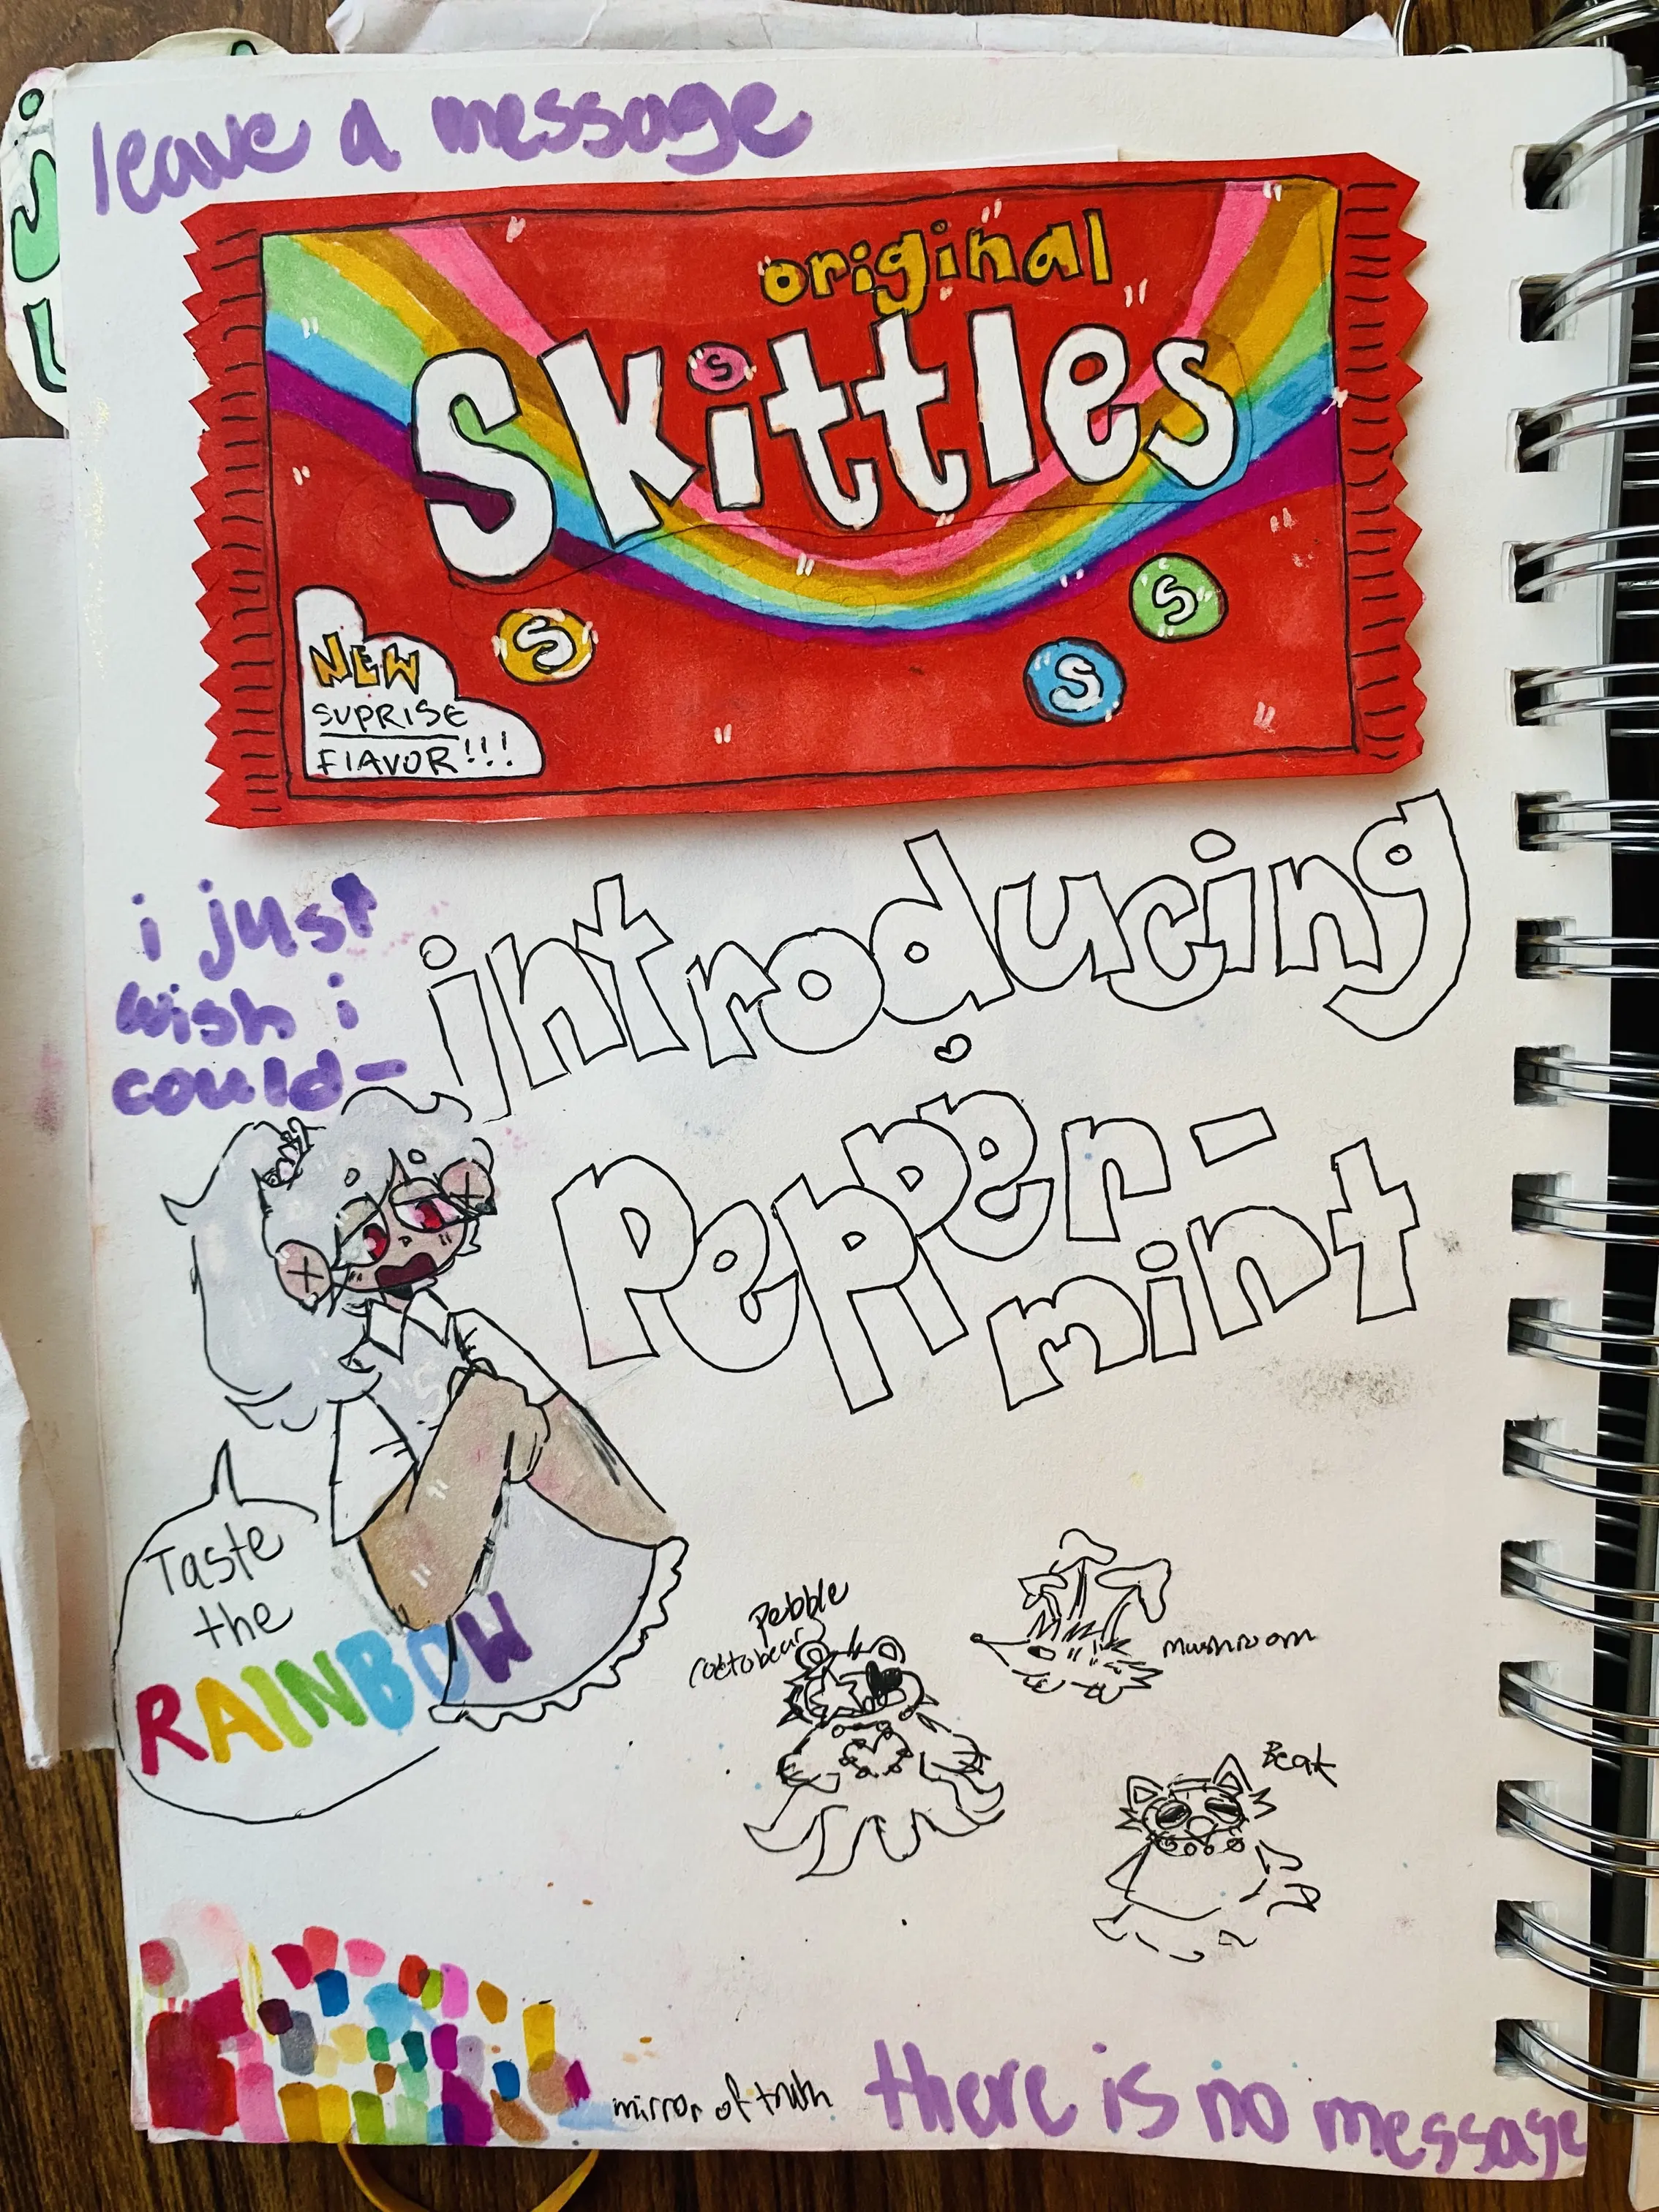 leave a message
original
Skittles
S
S
S
S
NEW
SUPRISE
FLAVOR!!!
i just
wish i
could-
introducing
Pepper-
mint
Taste
the
RAINBOW
Pebble
(octobear)
mushroom
Beak
mirror of truth
there is no message